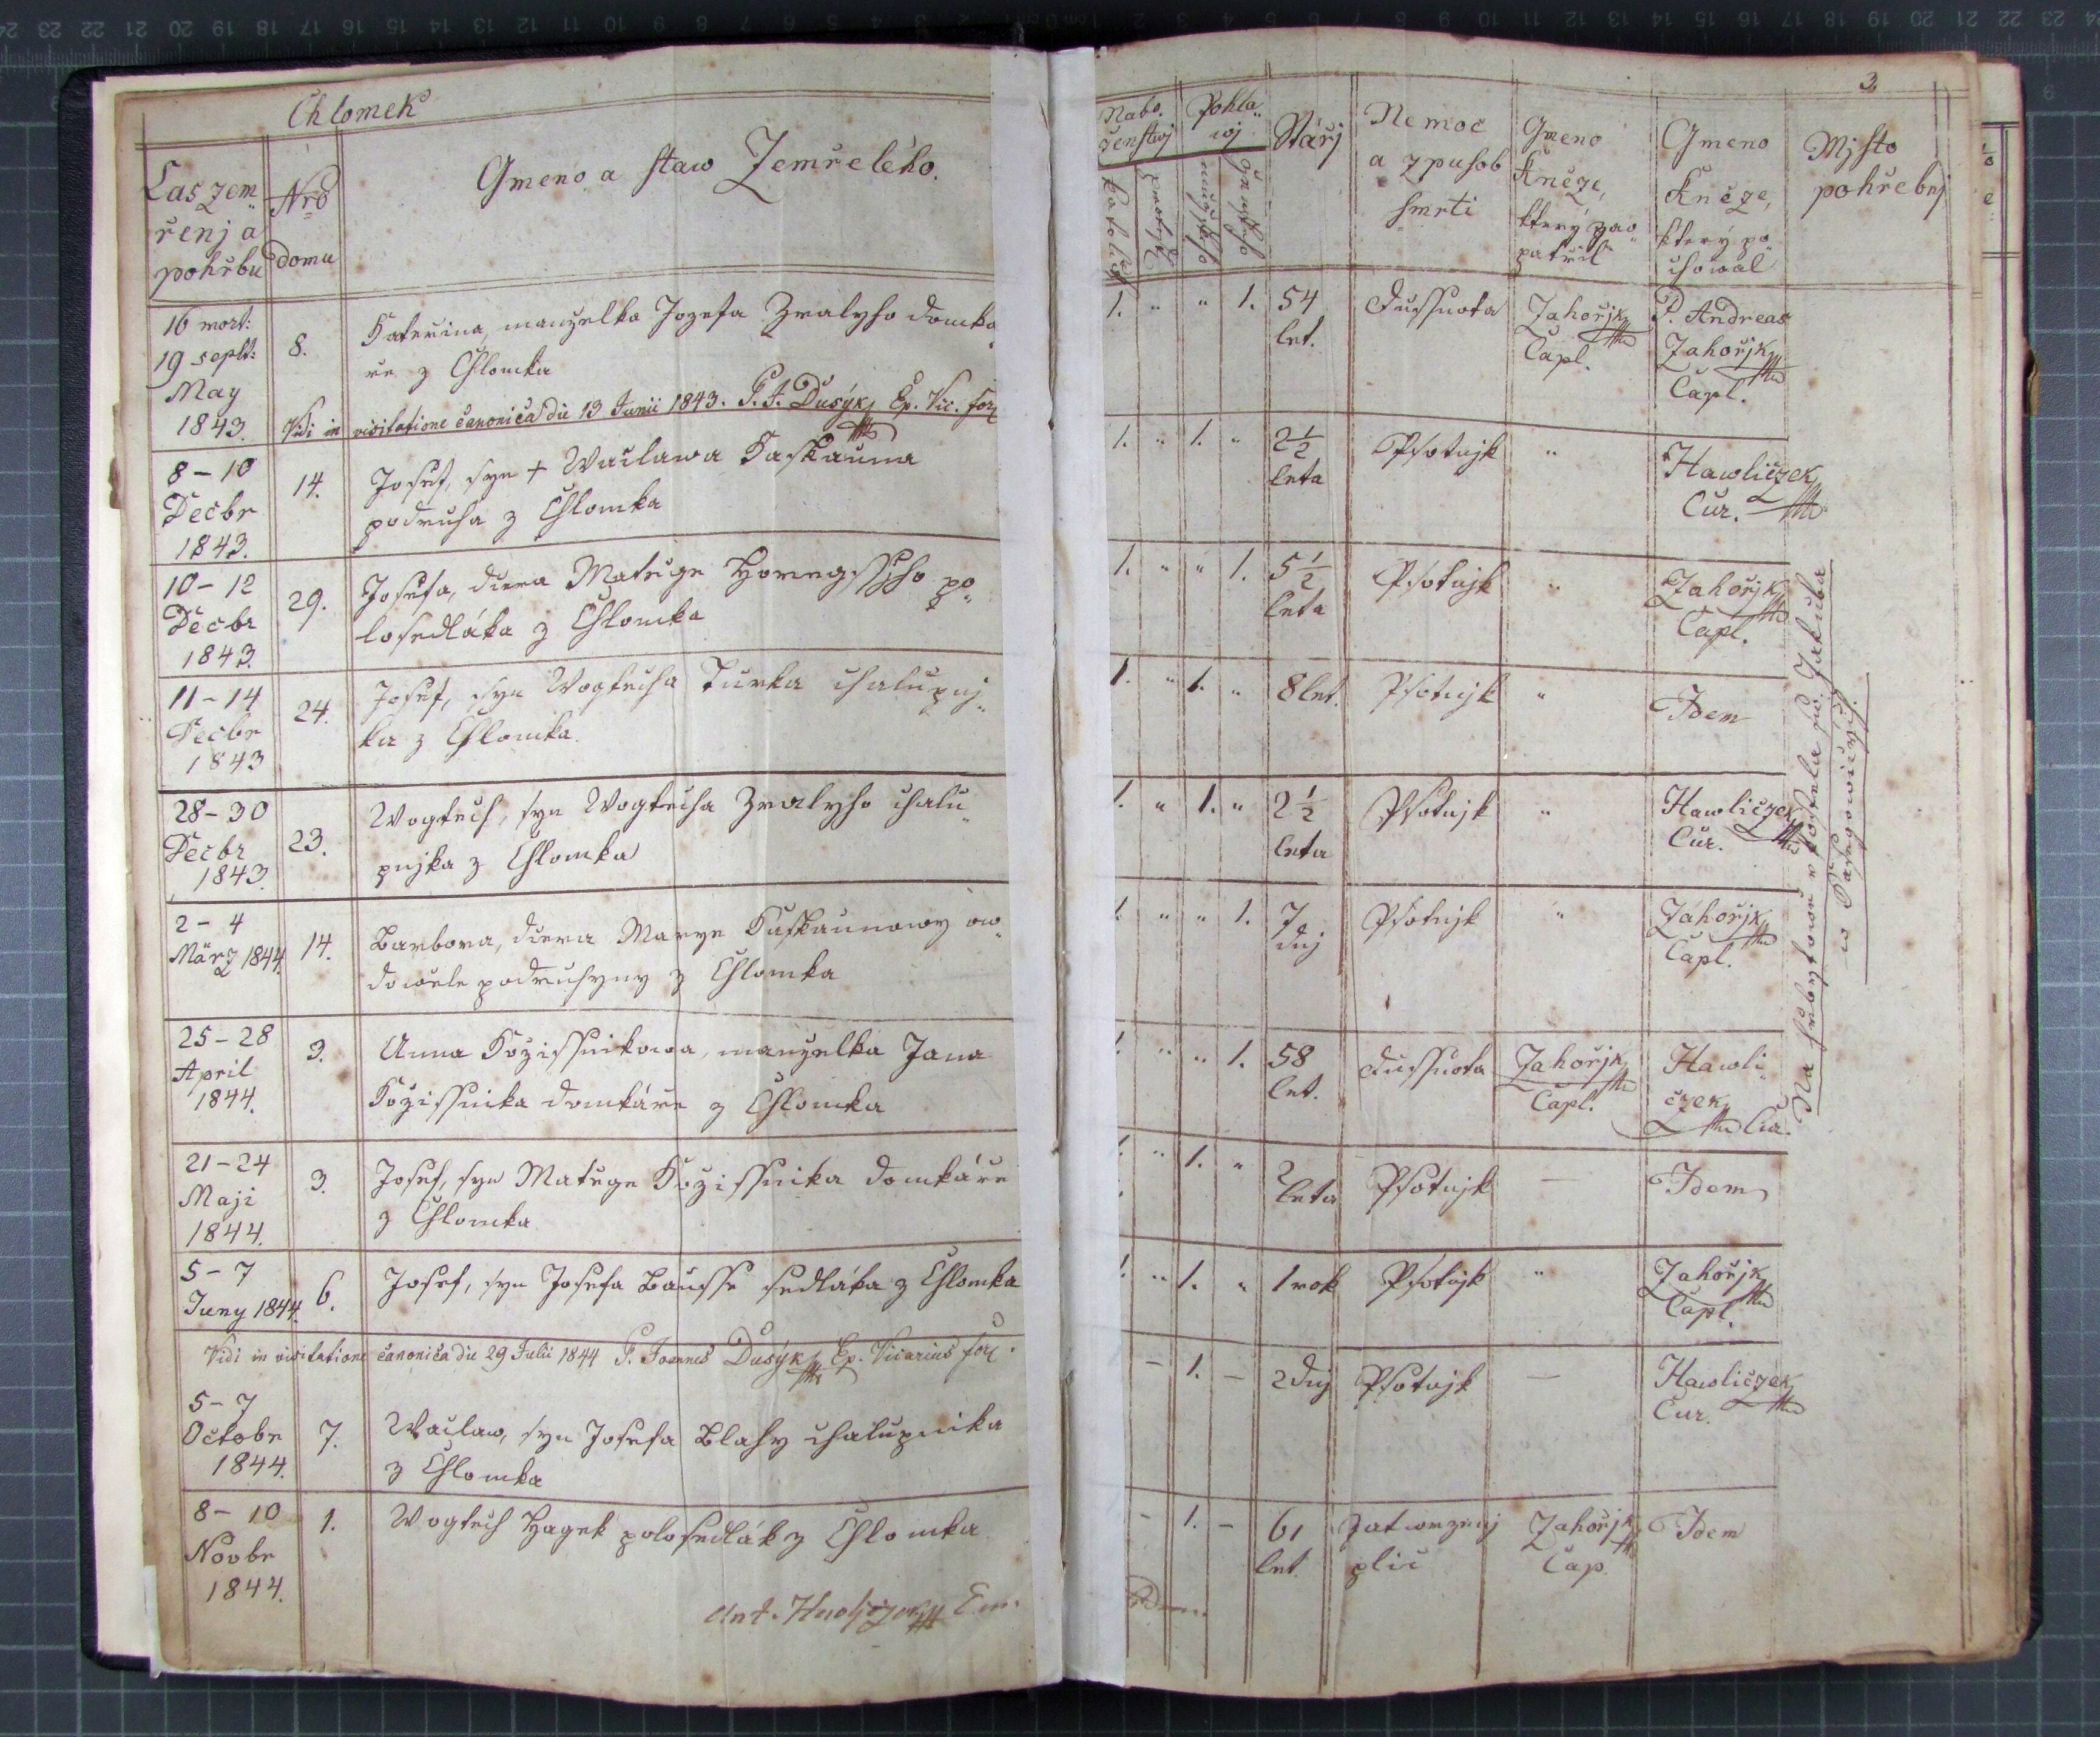 Chlomek
3.
Čas zem„
řenj a
pohřbu
Nro
domu
Gmeno a staw Zemřelého.
Nabo„
ženstwj
katolic
protest
Pohla„
wj
mužské
ženské
Stářj
Nemoc
a zpusob
smrti
Gmeno
Kněze,
který zao„
patřil
Gmeno
Kněze,
který po„
chowal
Mjsto
pohřebnj
16 mort:
19 seplt:
May
1843.
8.
Kateřina, manželka Jozefa Zralyho domka„
ře z Chlomka
1. „ „ 1.
54
let.
Saussnota
Zahořjk
Capl.
P. Andreas
Zahořjk
Capl.
Vidi in visitatione canonica die 13 Junii 1843. P. J. Dusÿk Ep. Vic. for
8 - 10
Decbr
1843.
14.
Josef, syn + Waclawa Kaskauna
podruha z Chlomka
1. „ 1. „
2 1/2
leta
Psotnjk
„
Hawliczek
Cur.
10 - 12
Decbr
1843.
29.
Josefa, dcera Matěge Horegssyho po„
losedláka z Chlomka
1. „ „ 1.
5 1/2
leta
Psotnjk
„
Zahořjk
Capl.
11 - 14
Decbr
1843
24.
Josef, syn Wogtecha Turka chalupnj„
ka z Chlomka
1. „ 1. „
8 let.
Psotnjk
„
Idem
28 - 30
Decbr
1843.
23.
Wogtech, syn Wogtecha Zralyho chalu„
pnjka z Chlomka
1. „ 1. „
2 1/2
leta
Psotnjk
„
Hawliczek
Cur.
2 - 4
März 1844.
14.
Barbora, dcera Marye Kaskaunowy ow„
dowěle podruhyny z Chlomka
1. „ „ 1.
7
dnj
Psotnjk
„
Zahořjk
Capl.
25 - 28
April
1844.
3.
Anna Kožissnikowa, manželka Jana
Kožissnika domkáře z Chlomka
1. „ „ 1.
58
let.
Saussnota
Zahořjk
Capl.
Hawli„
czek
Cur.
21 - 24
Maji
1844.
3.
Josef, syn Matěge Kožissnika domkáře
z Chlomka
1. „ 1. „
2
leta
Psotnjk
—
Idem
5 - 7
Juny 1844.
6.
Josef, syn Josefa Bausse sedláka z Chlomka
1. „ 1. „
1 rok
Psotnjk
„
Zahořjk
Capl.
Vidi in visitatione canonica die 29 Julii 1844 P. Joannes Dusÿk Ep. Vicarius for
5 - 7
Octobr
1844.
7.
Waclaw, syn Josefa Blahy chalupnika
z Chlomka
— 1. —
2 dnj
Psotnjk
—
Hawliczek
Cur.
8 - 10
Novbr
1844.
1.
Wogtech Hagek polosedlák z Chlomka
- 1. -
61
let.
Zatwrzenj
plic
Zahořjk
Cap.
Idem
Na hřbytowě u kostela sw. Jakuba
w
Ant.